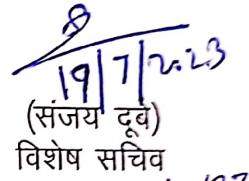 19/7/2023
(संजय दूबे)
विशेष सचिव